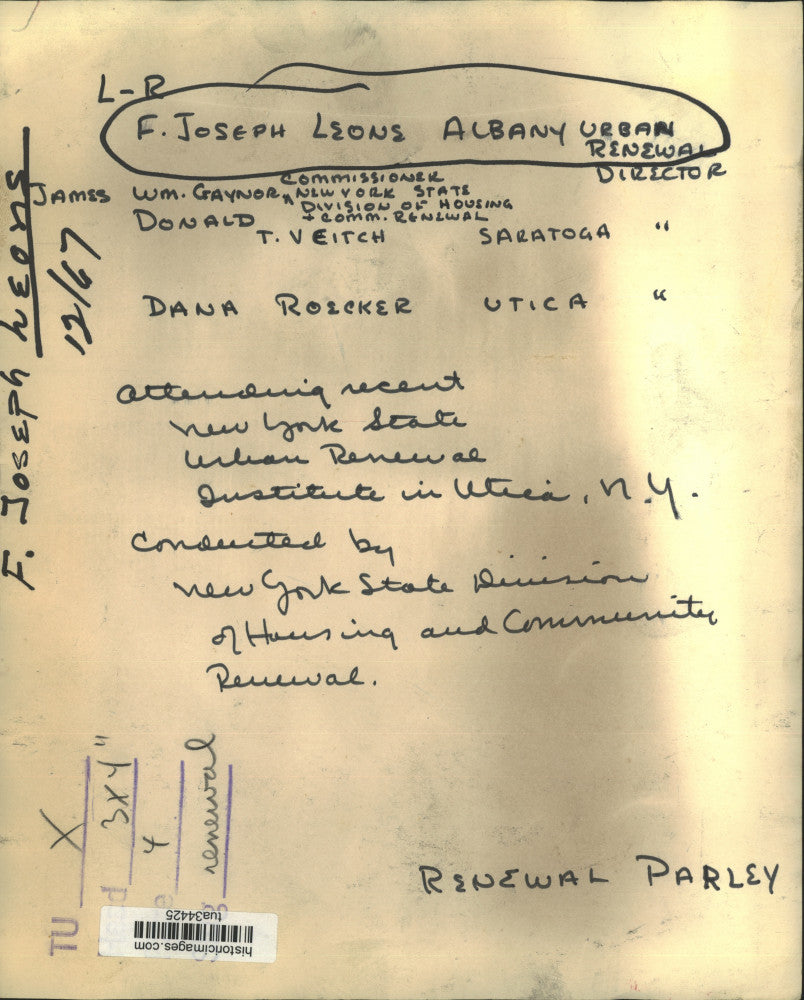 L-R
F. JOSEPH LEONE ALBANY URBAN
RENEWAL
DIRECTOR
COMMISSIONER
JAMES WM. GAYNOR, ^ NEW YORK STATE
DIVISION OF HOUSING
+ COMM. RENEWAL
DONALD
T. VEITCH SARATOGA "
DANA ROECKER UTICA "
attending recent
New York State
Urban Renewal
Institute in Utica, N.Y.
Conducted by
New York State Division
of Housing and Community
Renewal.
RENEWAL PARLEY
F. JOSEPH LEONE
12/67
TU X
3x4"
4
renewal
historicimages.com
tua34425